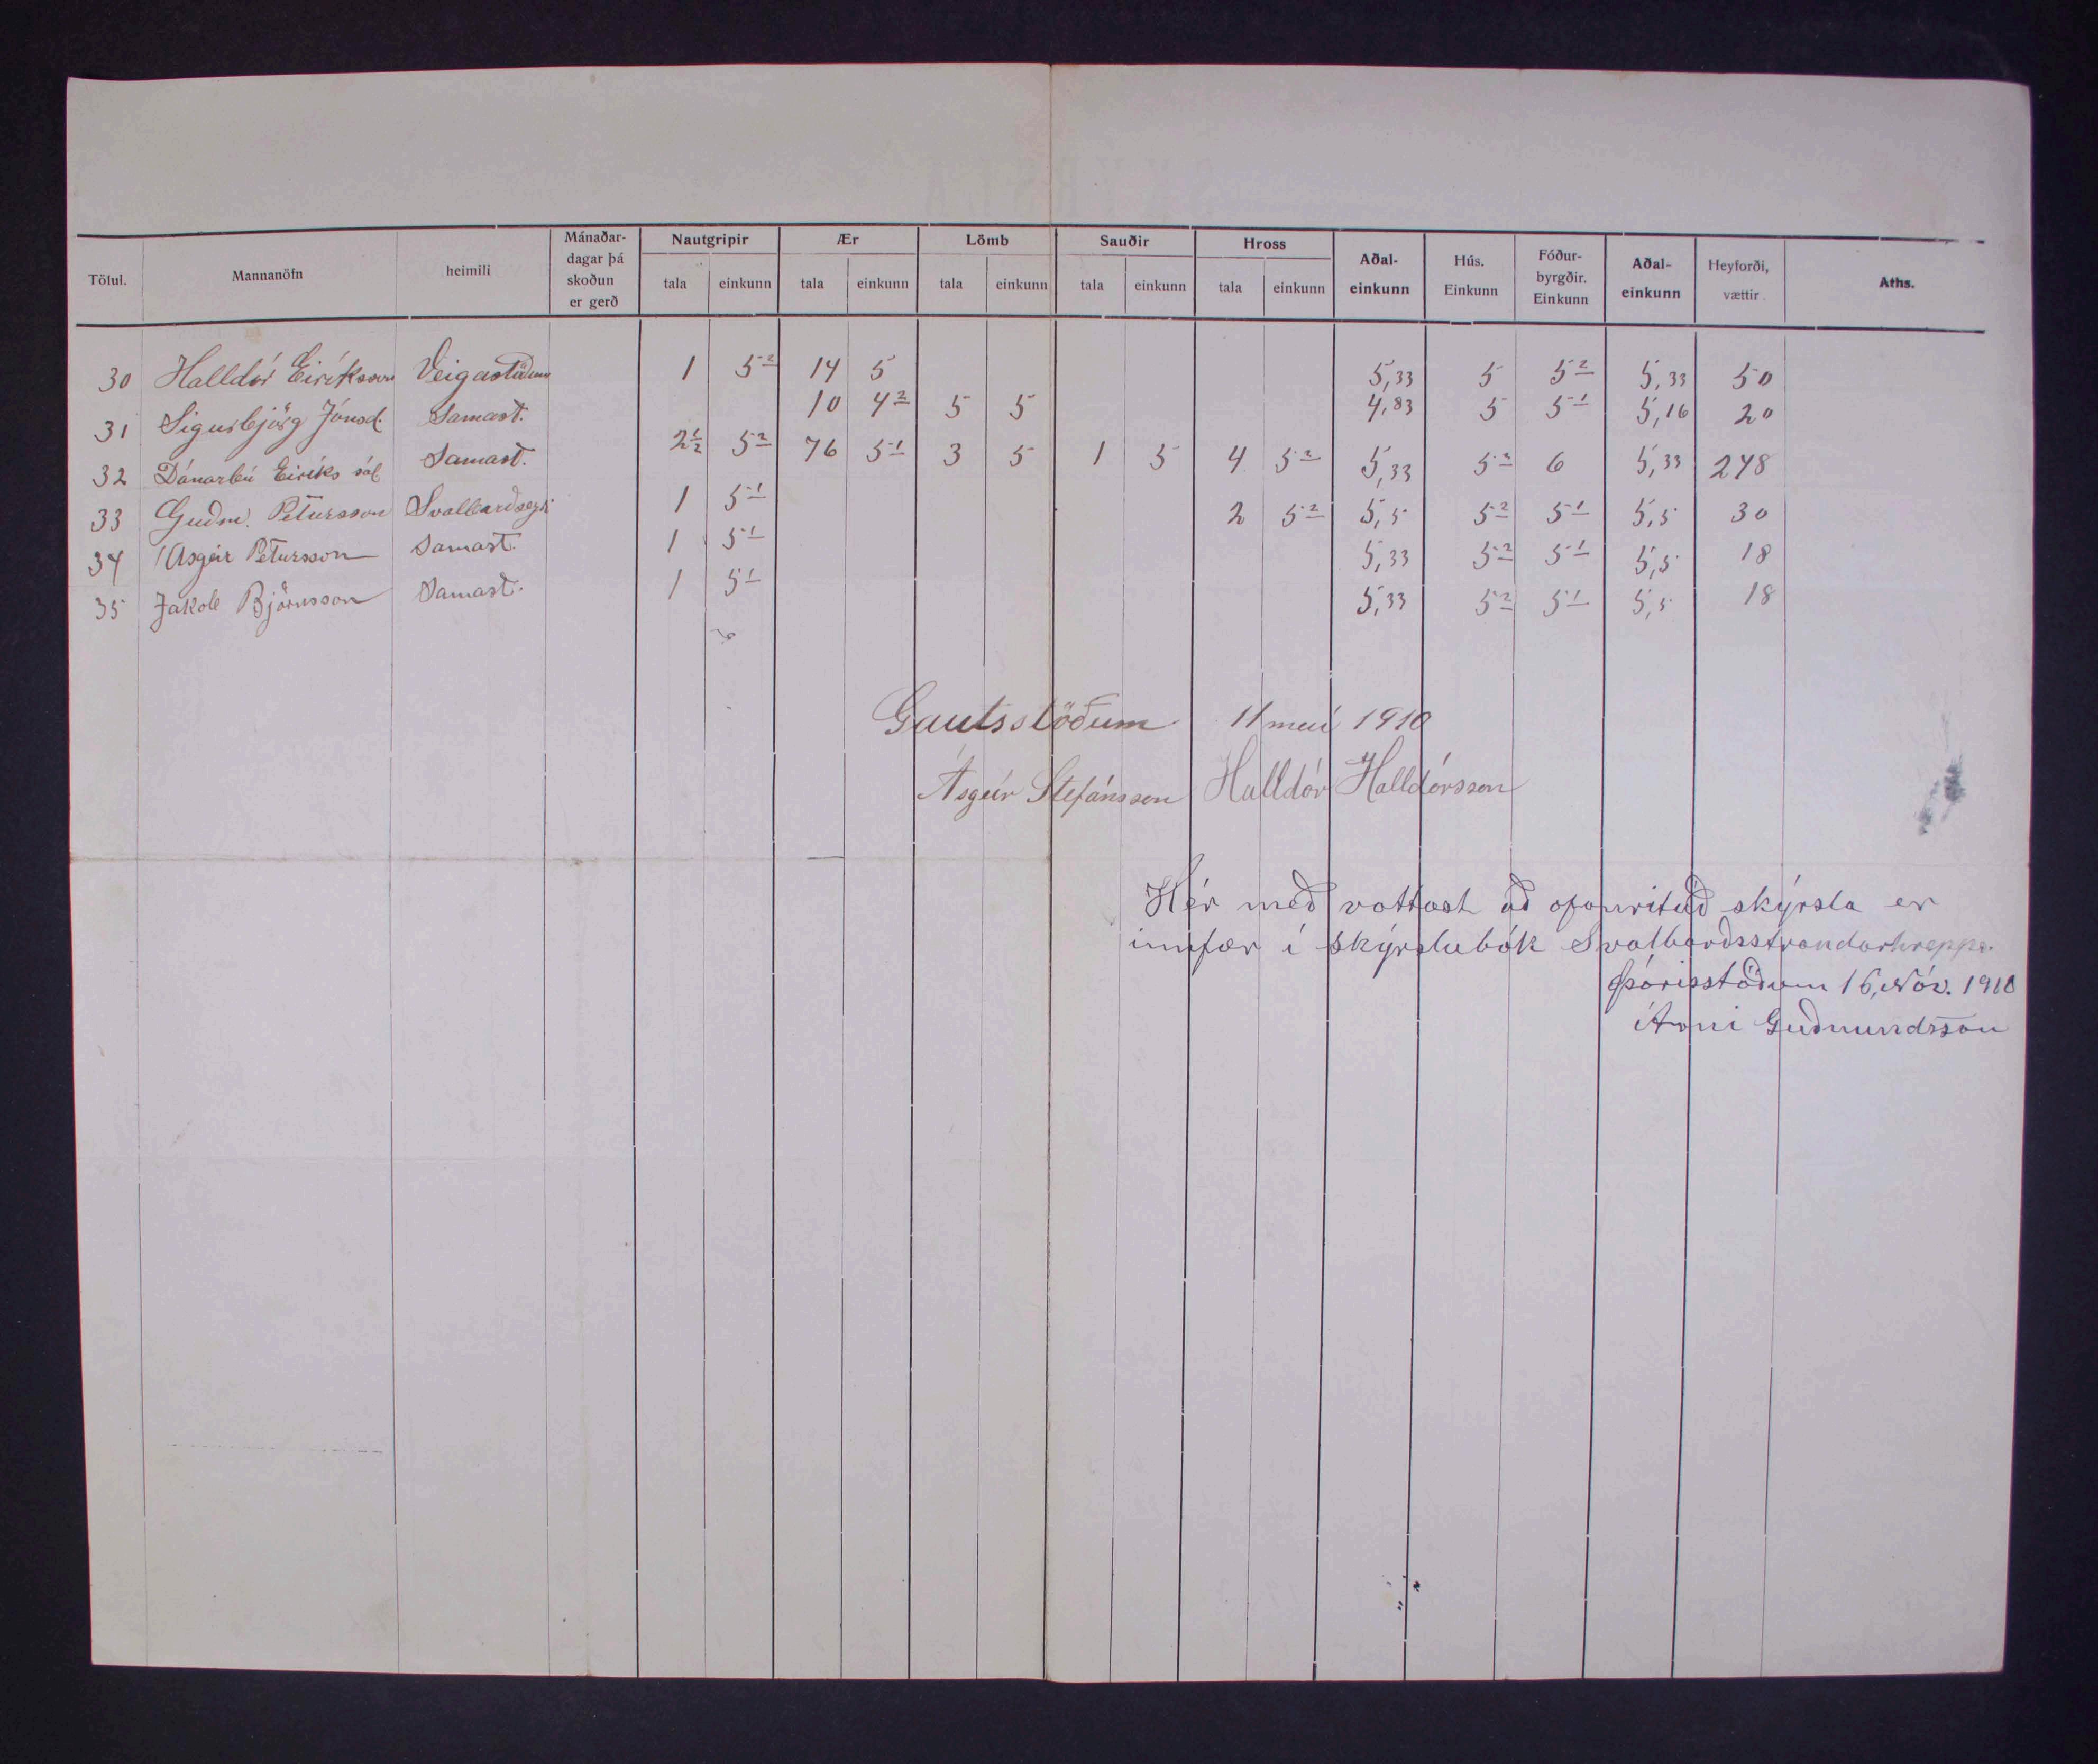 Mánaðar-
Nautgripir Ær Lömb Sauðir Hross
Tölul. Mannanöfn heimili dagar þá Aðal- Hús. Fóður- Aðal- Heyforði, Aths.
skoðun byrgðir.
tala einkunn tala einkunn tala einkunn tala einkunn tala einkunn einkunn Einkunn Einkunn einkunn vættir
er gerð
30 Halldór Eiríksson Veigastöðum 1 5 2 14 5 5,33 5 5 2 5,33 50
31 Sigurbjörg Jónsd. Samast. 10 4 2 5 5 4,83 5 5 1 5,16 20
32 Dánarbú Eiríks sál Samast. 2 1/2 5 2 76 5 1 3 5 1 5 4 5 2 5,33 5 2 6 5,33 248
33 Guðm. Petursson Svalbarðseyri 1 5 1 2 5 2 5,5 5 2 5 1 5,5 30
34 Asgeir Petursson Samast. 1 5 1 5,33 5 2 5 1 5,5 18
35 Jakob Björnsson Samast. 1 5 1 5,33 5 2 5 1 5,5 18
Gautsstöðum 11 maí 1910
Ásgeir Stefánsson Halldór Halldórsson
Hér með vottast að ofanrituð skýrsla er
innfær í skýrslubók Svalbarðsstrandarhrepps.
Þórisstöðum 16, Nóv. 1910
Árni Guðmundsson